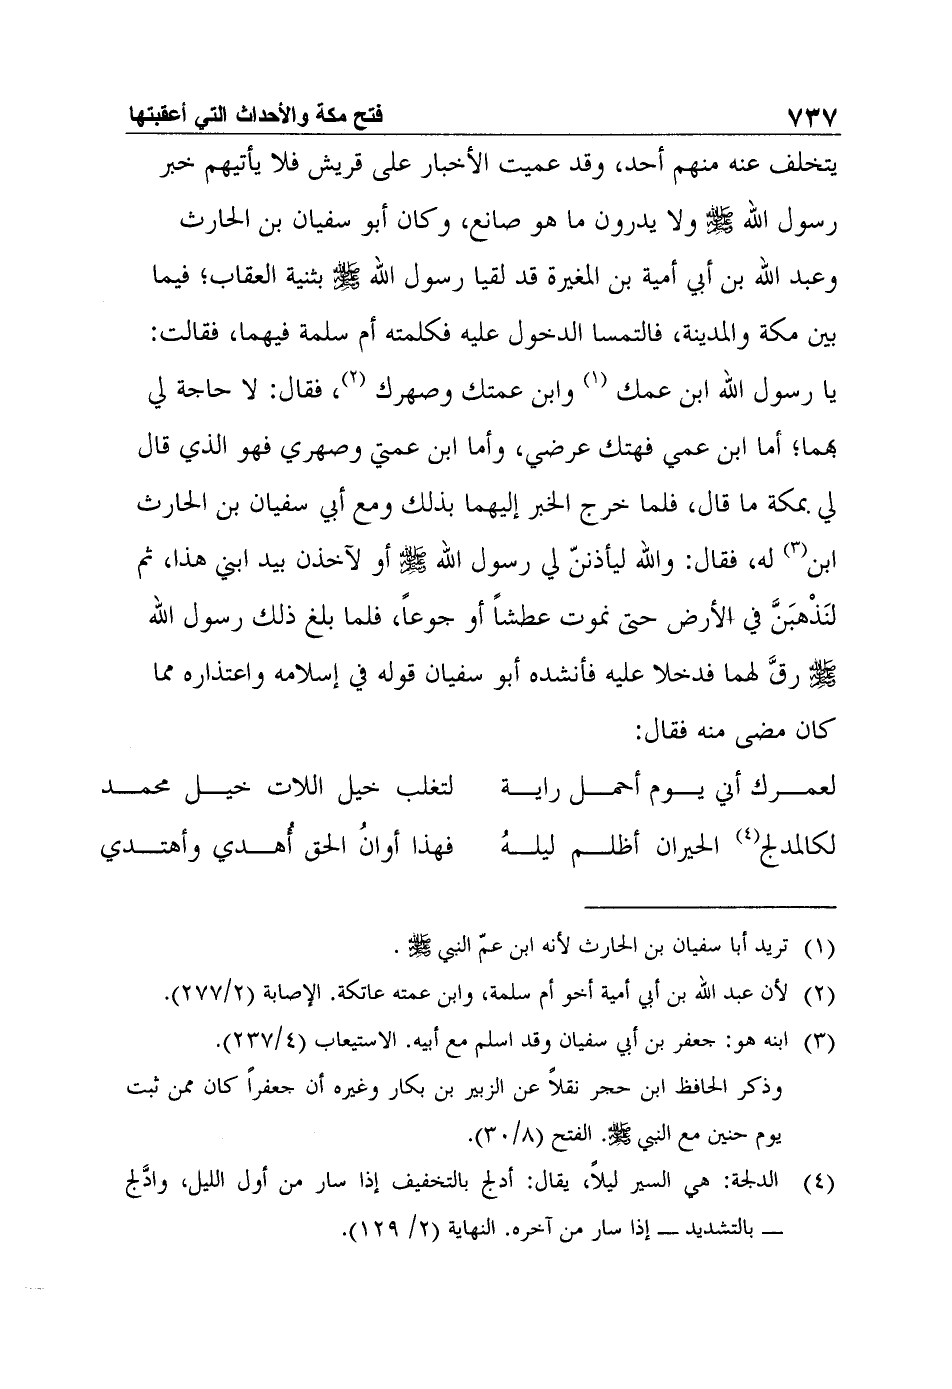 ٧٣٧ فتح مكة والأحداث التي أعقبتها
يتخلف عنه منهم أحد، وقد عميت الأخبار على قريش فلا يأتيهم خبر
رسول الله ﷺ ولا يدرون ما هو صانع، وكان أبو سفيان بن الحارث
وعبد الله بن أبي أمية بن المغيرة قد لقيا رسول الله ﷺ بثنية العقاب؛ فيما
بين مكة والمدينة، فالتمسا الدخول عليه فكلمته أم سلمة فيهما، فقالت:
يا رسول الله ابن عمك (١) وابن عمتك وصهرك (٢)، فقال: لا حاجة لي
بهما؛ أما ابن عمي فهتك عرضي، وأما ابن عمتي وصهري فهو الذي قال
لي بمكة ما قال، فلما خرج الخبر إليهما بذلك ومع أبي سفيان بن الحارث
ابن(٣) له، فقال: والله ليأذننّ لي رسول الله ﷺ أو لآخذن بيد ابني هذا، ثم
لنَذْهبَنَّ في الأرض حتى نموت عطشاً أو جوعاً، فلما بلغ ذلك رسول الله
ﷺ رقَّ لهما فدخلا عليه فأنشده أبو سفيان قوله في إسلامه واعتذاره مما
كان مضى منه فقال:
لعمـــرك أني يـــوم أحمـل رايـــة لتغلب خيل اللات خيـــل محمـــد
لكالمدلج(٤) الحيران أظلـــم ليلـــهُ فهذا أوانُ الحق أُهـــدي وأهتـــدي
(١) تريد أبا سفيان بن الحارث لأنه ابن عمّ النبي ﷺ .
(٢) لأن عبد الله بن أبي أمية أخو أم سلمة، وابن عمته عاتكة. الإصابة (٢٧٧/٢).
(٣) ابنه هو: جعفر بن أبي سفيان وقد اسلم مع أبيه. الاستيعاب (٢٣٧/٤).
وذكر الحافظ ابن حجر نقلاً عن الزبير بن بكار وغيره أن جعفراً كان ممن ثبت
يوم حنين مع النبي ﷺ. الفتح (٣٠/٨).
(٤) الدلجة: هي السير ليلاً، يقال: أدلج بالتخفيف إذا سار من أول الليل، وادَّلج
ـــ بالتشديد ـــ إذا سار من آخره. النهاية (٢/ ١٢٩).